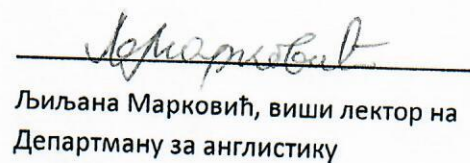 Љиљана Марковић, виши лектор на
Департману за англистику